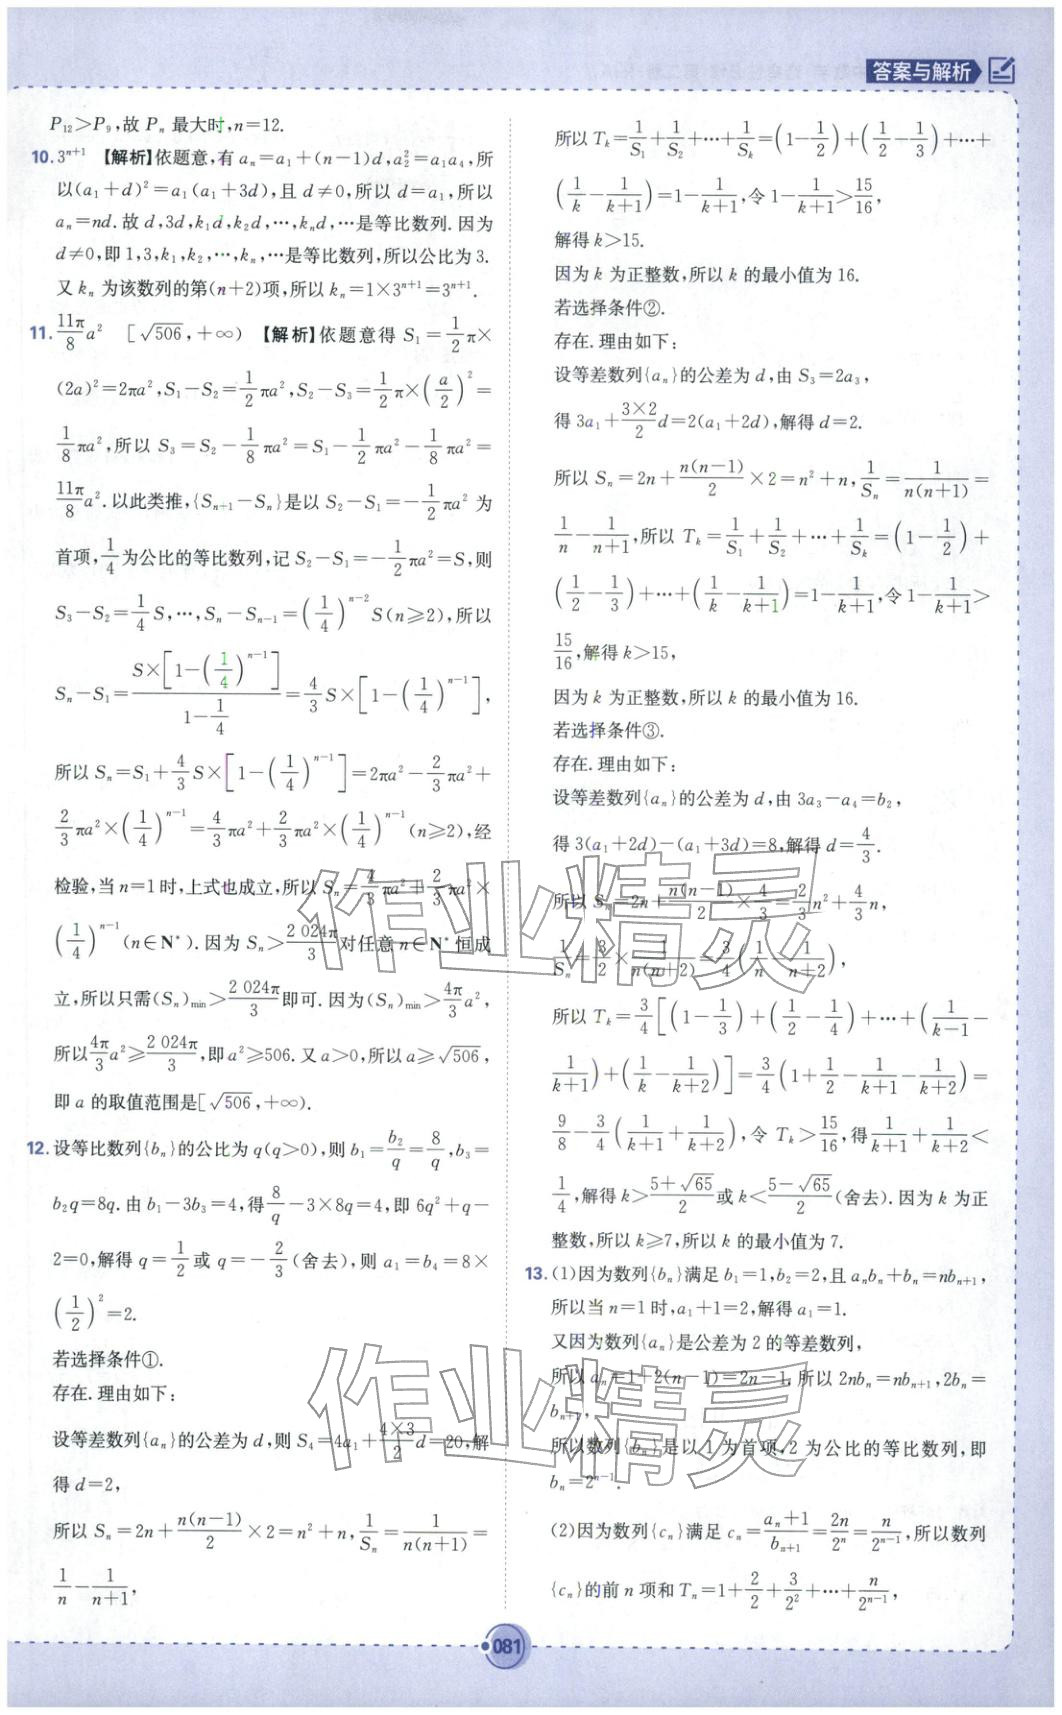 答案与解析
P₁₂>P₉,故 Pₙ 最大时,n=12.
10. 3ⁿ⁺¹ 【解析】依题意,有 aₙ=a₁+(n-1)d,a₂²=a₁a₄,所
以(a₁+d)²=a₁(a₁+3d),且 d≠0,所以 d=a₁,所以
aₙ=nd.故 d,3d,k₁d,k₂d,…,kₙd,…是等比数列.因为
d≠0,即 1,3,k₁,k₂,…,kₙ,…是等比数列,所以公比为 3.
又 kₙ 为该数列的第(n+2)项,所以 kₙ=1×3ⁿ⁺¹=3ⁿ⁺¹.
11. 11π/8 a² [√506,+∞) 【解析】依题意得 S₁=1/2 π×
(2a)²=2πa²,S₁-S₂=1/2 πa²,S₂-S₃=1/2 π×(a/2)²=
1/8 πa²,所以 S₃=S₂-1/8 πa²=S₁-1/2 πa²-1/8 πa²=
11π/8 a².以此类推,{Sₙ₊₁-Sₙ}是以 S₂-S₁=-1/2 πa² 为
首项,1/4 为公比的等比数列,记 S₂-S₁=-1/2 πa²=S,则
S₃-S₂=1/4 S,…,Sₙ-Sₙ₋₁=(1/4)ⁿ⁻² S(n≥2),所以
Sₙ-S₁=S×[1-(1/4)ⁿ⁻¹]/(1-1/4)=4/3 S×[1-(1/4)ⁿ⁻¹],
所以 Sₙ=S₁+4/3 S×[1-(1/4)ⁿ⁻¹]=2πa²-2/3 πa²+
2/3 πa²×(1/4)ⁿ⁻¹=4/3 πa²+2/3 πa²×(1/4)ⁿ⁻¹(n≥2),经
检验,当 n=1 时,上式也成立,所以 Sₙ=4/3 πa²+2/3 πa²×
(1/4)ⁿ⁻¹(n∈N*).因为 Sₙ>2 024π/3 对任意 n∈N* 恒成
立,所以只需(Sₙ)min>2 024π/3 即可.因为(Sₙ)min>4π/3 a²,
所以 4π/3 a²≥2 024π/3,即 a²≥506.又 a>0,所以 a≥√506,
即 a 的取值范围是[√506,+∞).
12. 设等比数列{bₙ}的公比为 q(q>0),则 b₁=b₂/q=8/q,b₃=
b₂q=8q.由 b₁-3b₃=4,得 8/q-3×8q=4,即 6q²+q-
2=0,解得 q=1/2 或 q=-2/3(舍去),则 a₁=b₄=8×
(1/2)²=2.
若选择条件①.
存在.理由如下:
设等差数列{aₙ}的公差为 d,则 S₄=4a₁+4×3/2 d=20,解
得 d=2,
所以 Sₙ=2n+n(n-1)/2×2=n²+n,1/Sₙ=1/n(n+1)=
1/n-1/(n+1),
所以 Tₖ=1/S₁+1/S₂+…+1/Sₖ=(1-1/2)+(1/2-1/3)+…+
(1/k-1/(k+1))=1-1/(k+1),令 1-1/(k+1)>15/16,
解得 k>15.
因为 k 为正整数,所以 k 的最小值为 16.
若选择条件②.
存在.理由如下:
设等差数列{aₙ}的公差为 d,由 S₃=2a₃,
得 3a₁+3×2/2 d=2(a₁+2d),解得 d=2.
所以 Sₙ=2n+n(n-1)/2×2=n²+n,1/Sₙ=1/n(n+1)=
1/n-1/(n+1),所以 Tₖ=1/S₁+1/S₂+…+1/Sₖ=(1-1/2)+
(1/2-1/3)+…+(1/k-1/(k+1))=1-1/(k+1),令 1-1/(k+1)>
15/16,解得 k>15,
因为 k 为正整数,所以 k 的最小值为 16.
若选择条件③.
存在.理由如下:
设等差数列{aₙ}的公差为 d,由 3a₃-a₄=b₂,
得 3(a₁+2d)-(a₁+3d)=8,解得 d=4/3.
所以 Sₙ=2n+n(n-1)/2×4/3=2/3 n²+4/3 n,
1/Sₙ=3/2×1/n(n+2)=3/4(1/n-1/(n+2)),
所以 Tₖ=3/4[(1-1/3)+(1/2-1/4)+…+(1/(k-1)-
1/(k+1))+(1/k-1/(k+2))]=3/4(1+1/2-1/(k+1)-1/(k+2))=
9/8-3/4(1/(k+1)+1/(k+2)),令 Tₖ>15/16,得 1/(k+1)+1/(k+2)<
1/4,解得 k>(5+√65)/2 或 k<(5-√65)/2(舍去).因为 k 为正
整数,所以 k≥7,所以 k 的最小值为 7.
13. (1)因为数列{bₙ}满足 b₁=1,b₂=2,且 aₙbₙ+bₙ=nbₙ₊₁,
所以当 n=1 时,a₁+1=2,解得 a₁=1.
又因为数列{aₙ}是公差为 2 的等差数列,
所以 aₙ=1+2(n-1)=2n-1.所以 2nbₙ=nbₙ₊₁,2bₙ=
bₙ₊₁,
所以数列{bₙ}是以 1 为首项,2 为公比的等比数列,即
bₙ=2ⁿ⁻¹.
(2)因为数列{cₙ}满足 cₙ=(aₙ+1)/bₙ₊₁=2n/2ⁿ=n/2ⁿ⁻¹,所以数列
{cₙ}的前 n 项和 Tₙ=1+2/2+3/2²+…+n/2ⁿ⁻¹,
作业精灵
作业精灵
081